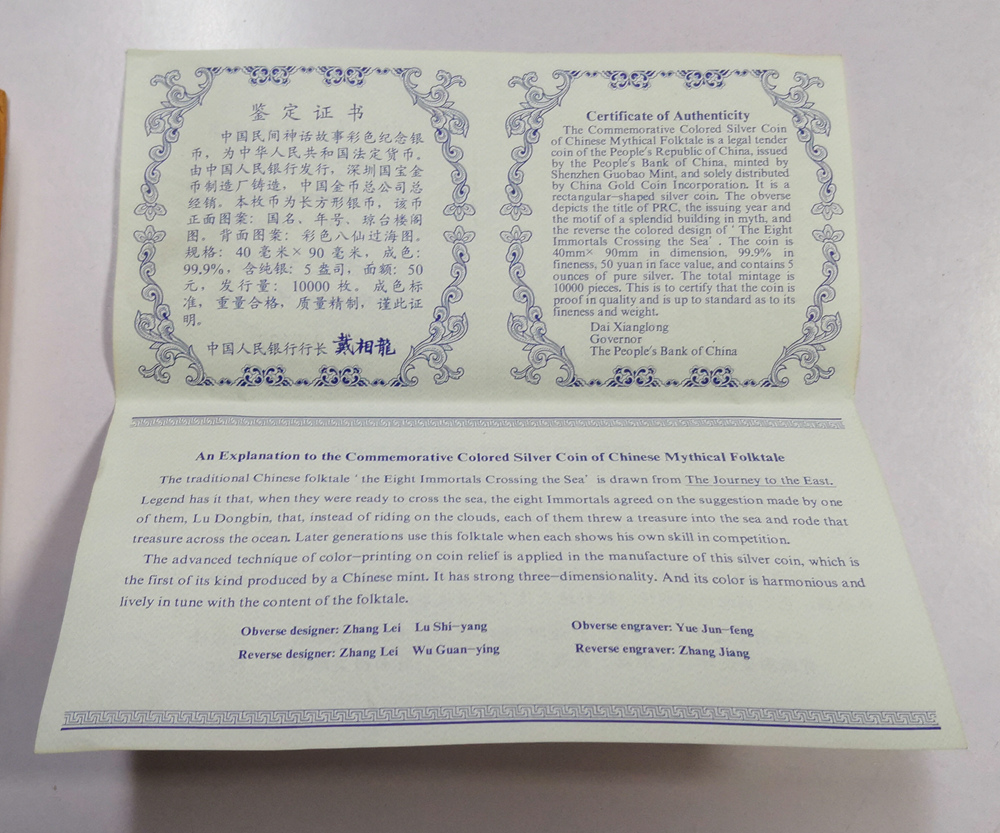 鉴定证书
中国民间神话故事彩色纪念银
币，为中华人民共和国法定货币。
由中国人民银行发行，深圳国宝金
币制造厂铸造，中国金币总公司总
经销。本枚币为长方形银币，该币
正面图案：国名、年号、琼台楼阁
图。背面图案：彩色八仙过海图。
规格：40毫米×90毫米，成色：
99.9%，含纯银：5盎司，面额：50
元，发行量：10000枚。成色标
准，重量合格，质量精制，谨此证
明。
中国人民银行行长 戴相龍
Certificate of Authenticity
The Commemorative Colored Silver Coin
of Chinese Mythical Folktale is a legal tender
coin of the People's Republic of China, issued
by the People's Bank of China, minted by
Shenzhen Guobao Mint, and solely distributed
by China Gold Coin Incorporation. It is a
rectangular-shaped silver coin. The obverse
depicts the title of PRC, the issuing year and
the motif of a splendid building in myth, and
the reverse the colored design of 'The Eight
Immortals Crossing the Sea'. The coin is
40mm× 90mm in dimension, 99.9% in
fineness, 50 yuan in face value, and contains 5
ounces of pure silver. The total mintage is
10000 pieces. This is to certify that the coin is
proof in quality and is up to standard as to its
fineness and weight.
Dai Xianglong
Governor
The People's Bank of China
An Explanation to the Commemorative Colored Silver Coin of Chinese Mythical Folktale
The traditional Chinese folktale 'the Eight Immortals Crossing the Sea' is drawn from The Journey to the East.
Legend has it that, when they were ready to cross the sea, the eight Immortals agreed on the suggestion made by one
of them, Lu Dongbin, that, instead of riding on the clouds, each of them threw a treasure into the sea and rode that
treasure across the ocean. Later generations use this folktale when each shows his own skill in competition.
The advanced technique of color-printing on coin relief is applied in the manufacture of this silver coin, which is
the first of its kind produced by a Chinese mint. It has strong three-dimensionality. And its color is harmonious and
lively in tune with the content of the folktale.
Obverse designer: Zhang Lei Lu Shi-yang Obverse engraver: Yue Jun-feng
Reverse designer: Zhang Lei Wu Guan-ying Reverse engraver: Zhang Jiang